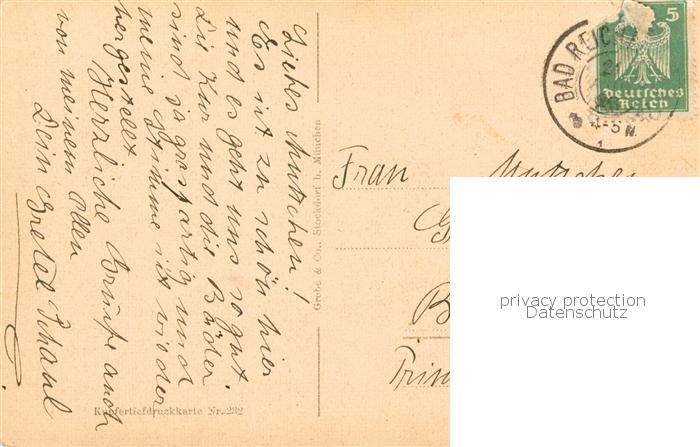 Liebes Muttchen!
Es ist zu schön hier
und es geht uns so gut
Die Kur und die Bäder
sind so grosartig und
meine Stimme ist wieder
hergestellt
Herzliche Grüsse auch
von meinem Allen
Dein Gretel
Grobe & Co., Stockdorf b. München
Kupfertiefdruckkarte Nr. 232
5
Deutsches
Reich
BAD REICH
4-5 N.
Frau
privacy protection
Datenschutz